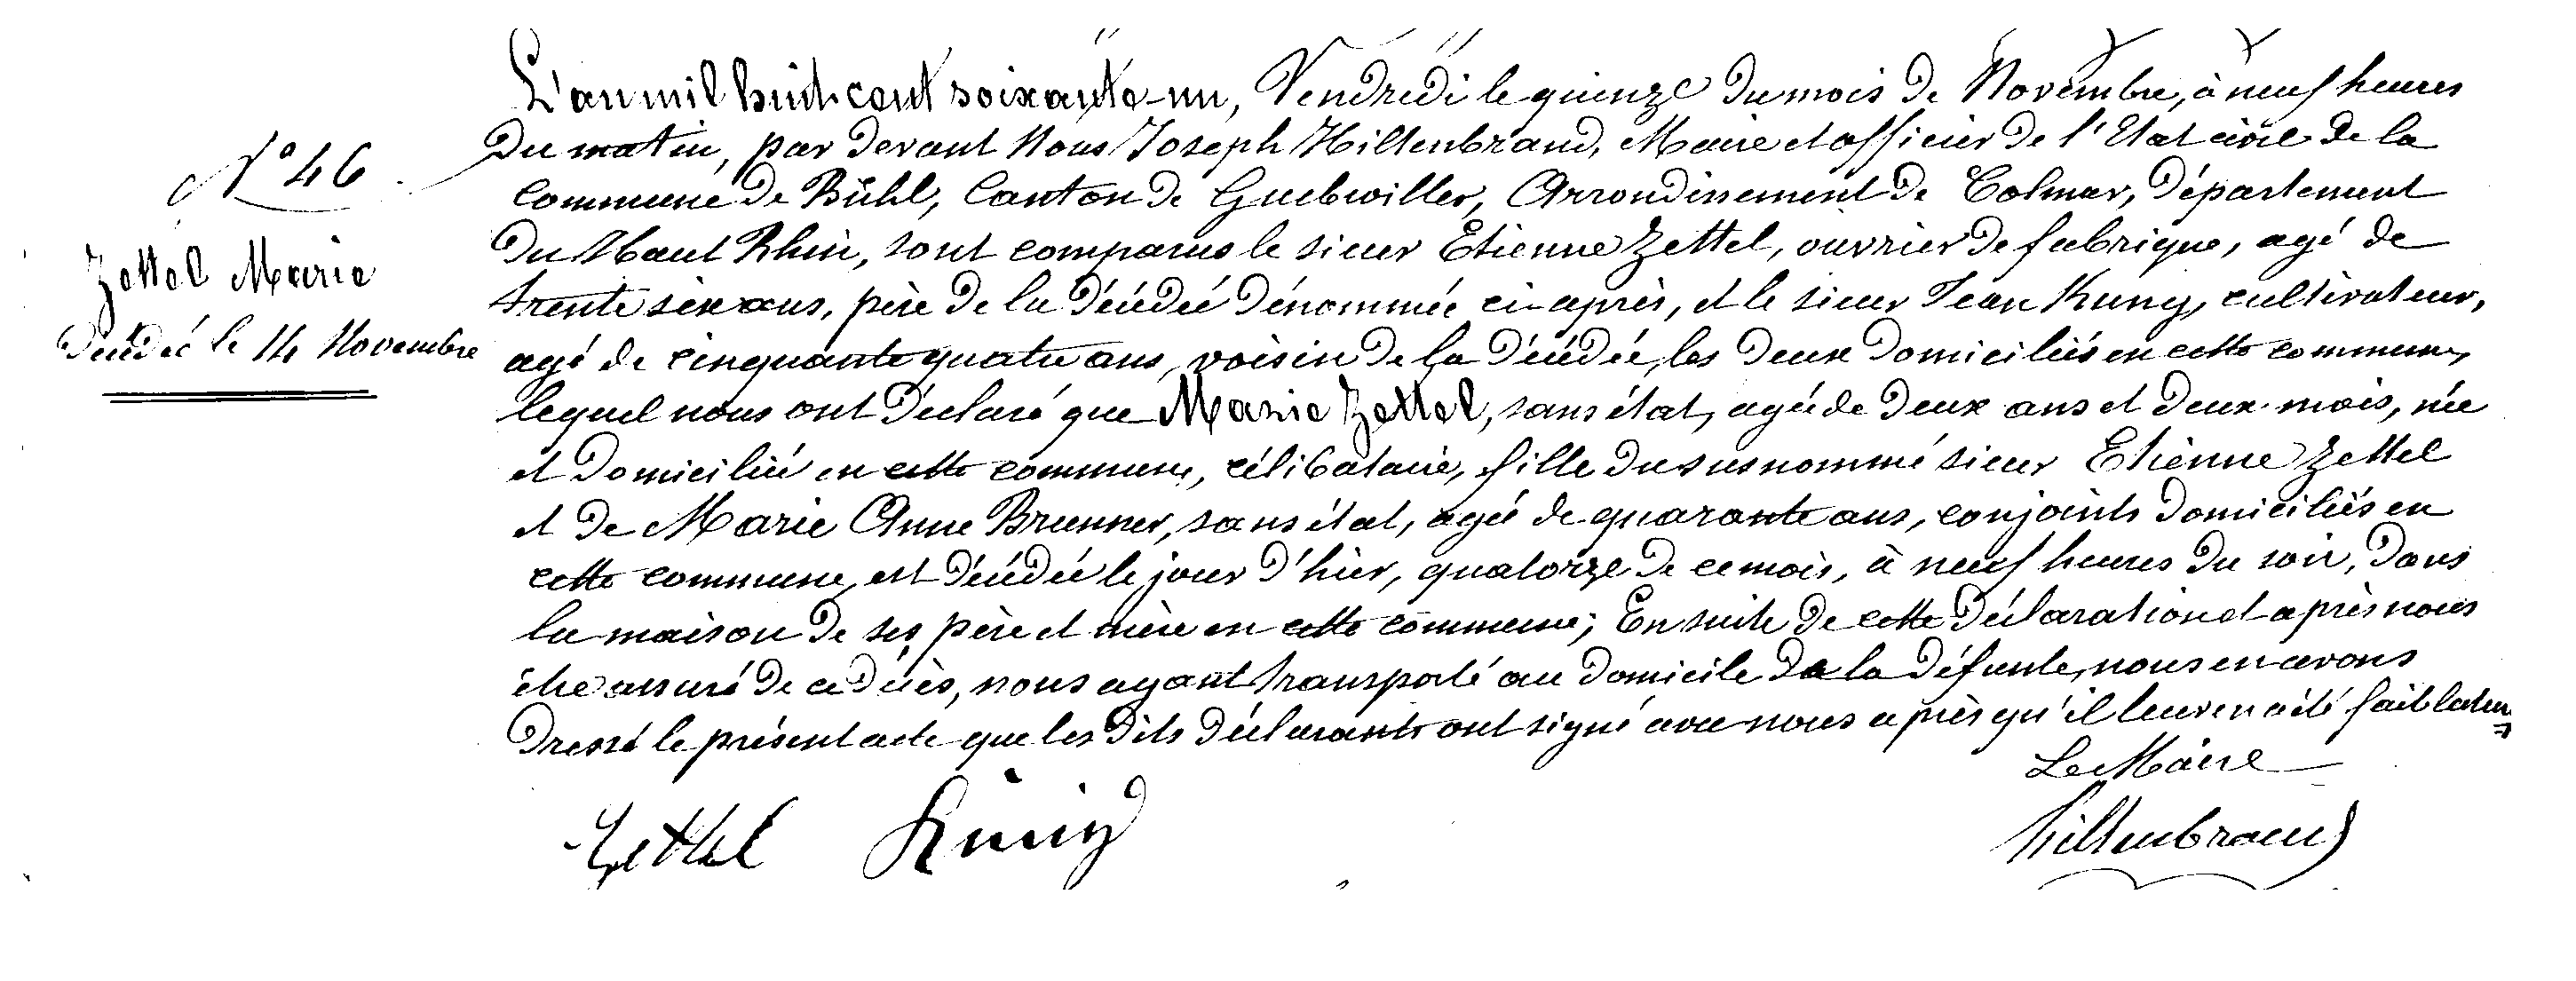 N° 46
Zettel Marie
décédée le 14 Novembre
L'an mil huit cent soixante-un, Vendredi le quinze du mois de Novembre, à neuf heures
du matin, par devant Nous Joseph Hiltenbrand, Maire et officier de l'Etat civil de la
commune de Bühl, Canton de Guebwiller, Arrondissement de Colmar, Département
du Haut Rhin, sont comparus le sieur Etienne Zettel, ouvrier de fabrique, agé de
trente six ans, père de la décédée dénommée ci-après, et le sieur Jean Kuny, cultivateur,
agé de cinquante quatre ans, voisin de la décédée, les deux domiciliés en cette commune,
lequel nous ont déclaré que Marie Zettel, sans état, agée de deux ans et deux mois, née
et domiciliée en cette commune, célibataire, fille du susnommé sieur Etienne Zettel
et de Marie Anne Brunner, sans état, agée de quarante ans, conjoints domiciliés en
cette commune, est décédée le jour d'hier, quatorze de ce mois, à neuf heures du soir, dans
la maison de ses père et mère en cette commune; En suite de cette déclaration et après nous
être assuré de ce décès, nous ayant transporté au domicile de la défunte, nous en avons
dressé le présent acte que les dits déclarants ont signé avec nous après qu'il leur en a été fait lecture
Le Maire
Zettel Kuny Hiltenbrand